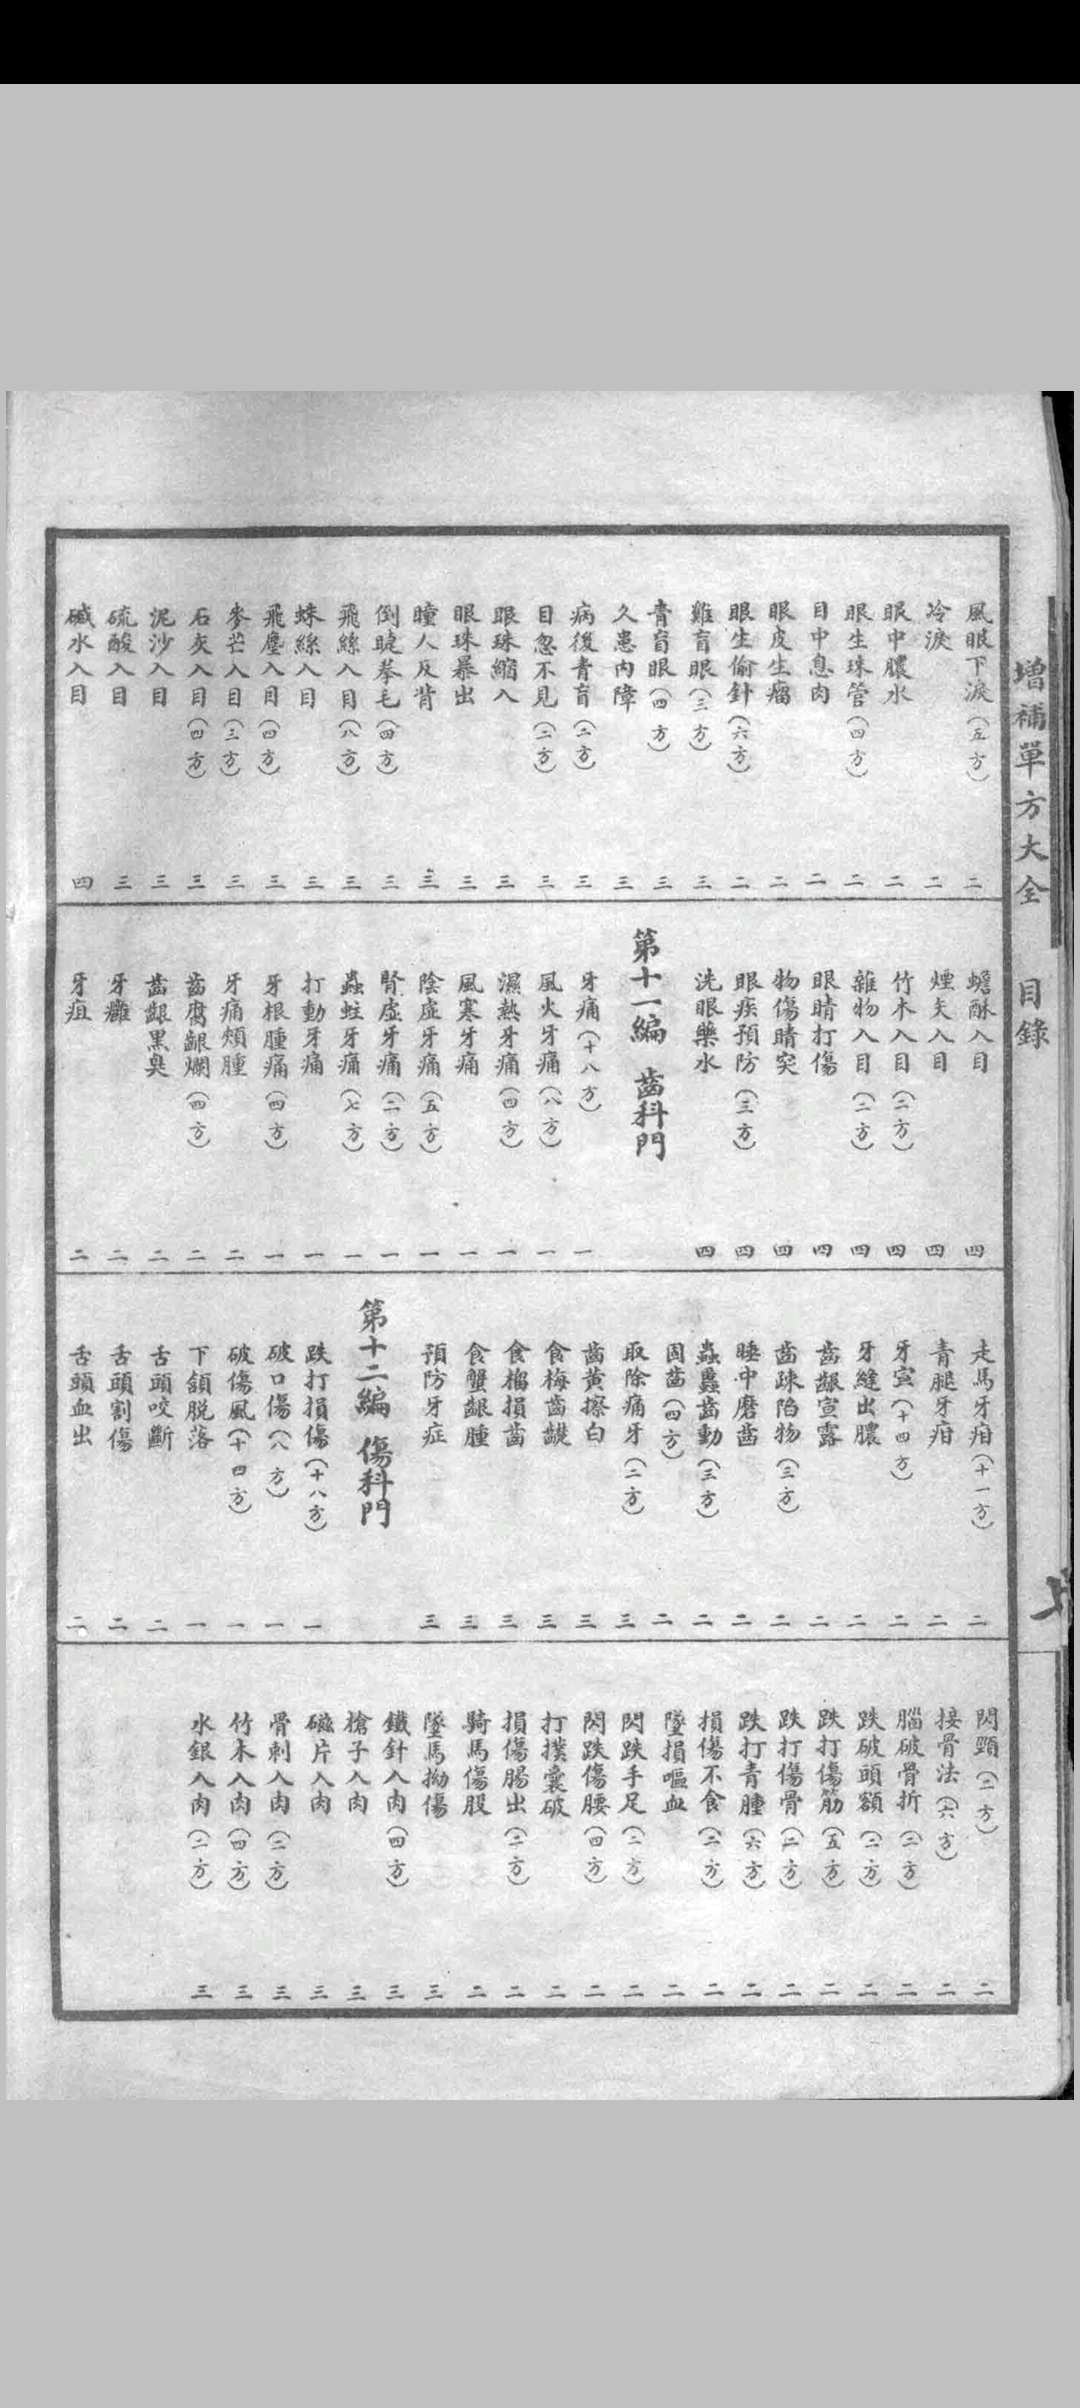 增補單方大全　目錄
風眼下淚(五方)　二
冷淚　二
眼中膿水　二
眼生珠管(四方)　二
目中息肉　二
眼皮生瘤　二
眼生偷針(六方)　二
雞盲眼(三方)　三
青盲眼(四方)　三
久患內障　三
病後青盲(二方)　三
目忽不見(二方)　三
眼珠縮入　三
眼珠暴出　三
瞳人反背　三
倒睫拳毛(四方)　三
飛絲入目(八方)　三
蛛絲入目　三
飛塵入目(四方)　三
麥芒入目(三方)　三
石灰入目(四方)　三
泥沙入目　三
硫酸入目　三
碱水入目　四
蟾酥入目　四
煙矢入目　四
竹木入目(二方)　四
雜物入目(二方)　四
眼睛打傷　四
物傷睛突　四
眼疾預防(三方)　四
洗眼藥水　四
第十一編　齒科門
牙痛(十八方)　一
風火牙痛(八方)　一
濕熱牙痛(四方)　一
風寒牙痛　一
陰虛牙痛(五方)　一
腎虛牙痛(二方)　一
蟲蛀牙痛(七方)　一
打動牙痛　一
牙根腫痛(四方)　一
牙痛頰腫　二
齒腐齦爛(四方)　二
齒齦黑臭　二
牙癰　二
牙疽　二
走馬牙疳(十一方)　二
青腿牙疳　二
牙宣(十四方)　二
牙縫出膿　二
齒齦宣露　二
齒疎陷物(三方)　二
睡中磨齒　二
蟲蠹齒動(三方)　二
固齒(四方)　二
取除痛牙(二方)　三
齒黃擦白　三
食梅齒齼　三
食榴損齒　三
食蟹齦腫　三
預防牙症　三
第十二編　傷科門
跌打損傷(十八方)　一
破口傷(八方)　一
破傷風(十四方)　一
下頷脫落　一
舌頭咬斷　二
舌頭割傷　二
舌頭血出　二
閃頸(二方)　二
接骨法(六方)　二
腦破骨折(三方)　二
跌破頭額(二方)　二
跌打傷筋(五方)　二
跌打傷骨(二方)　二
跌打青腫(六方)　二
損傷不食(二方)　二
墜損嘔血　二
閃跌手足(二方)　二
閃跌傷腰(四方)　二
打撲囊破　二
損傷腸出(二方)　二
騎馬傷股　二
墜馬拗傷　三
鐵針入肉(四方)　三
槍子入肉　三
磁片入肉　三
骨刺入肉(二方)　三
竹木入肉(四方)　三
水銀入肉(二方)　三